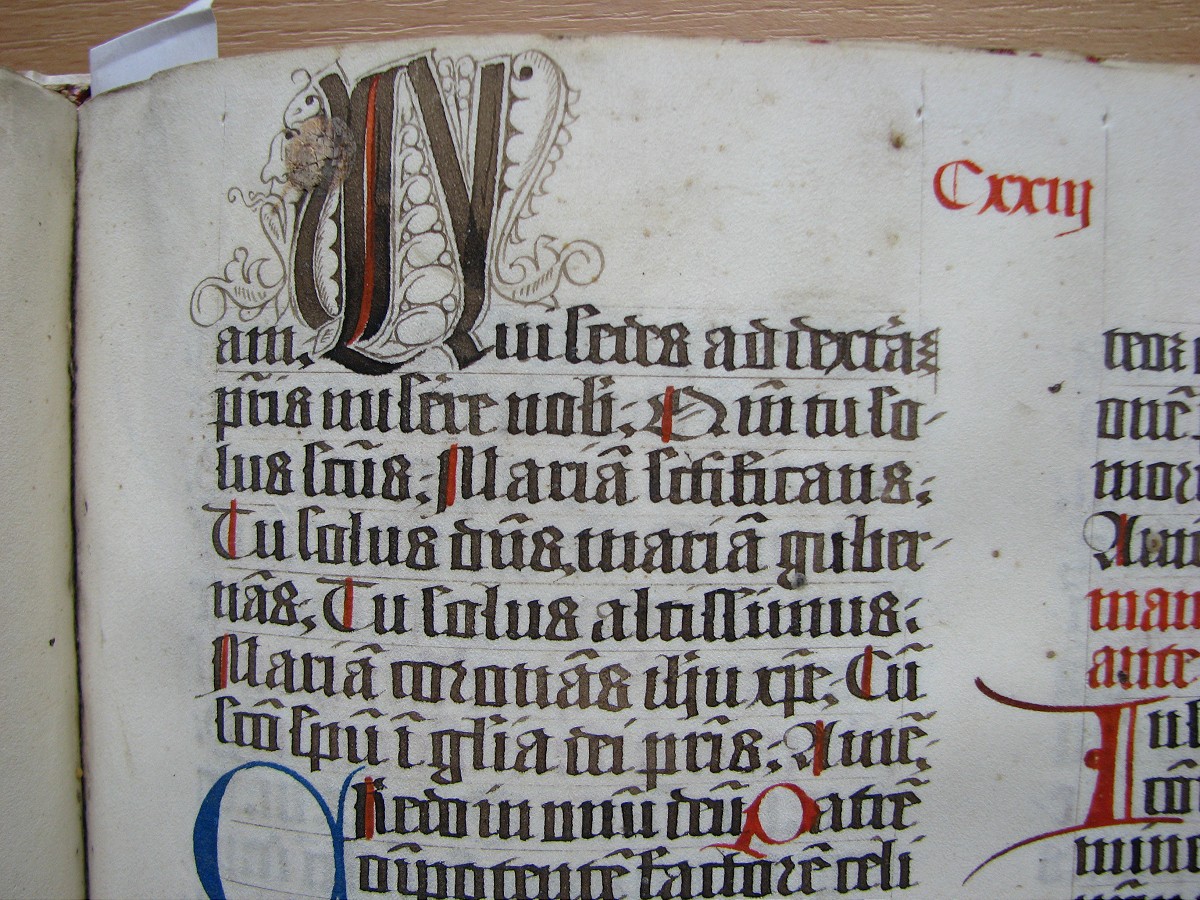 Cxxiij
am, Qui sedes ad dextā
pr̄is miserē nob̄; Qm̄ tu so-
lus sc̄us; Mariā sc̄ificans;
Tu solus dn̄s, mariā guber-
nās; Tu solus altissimus;
Mariā coronās ih̄u xp̄e; Cū
sc̄o sp̄u ī gl̄ia dei pr̄is; Amē;
Credo in unū deū Patrē
oīpotentē factorē celi
man
ante